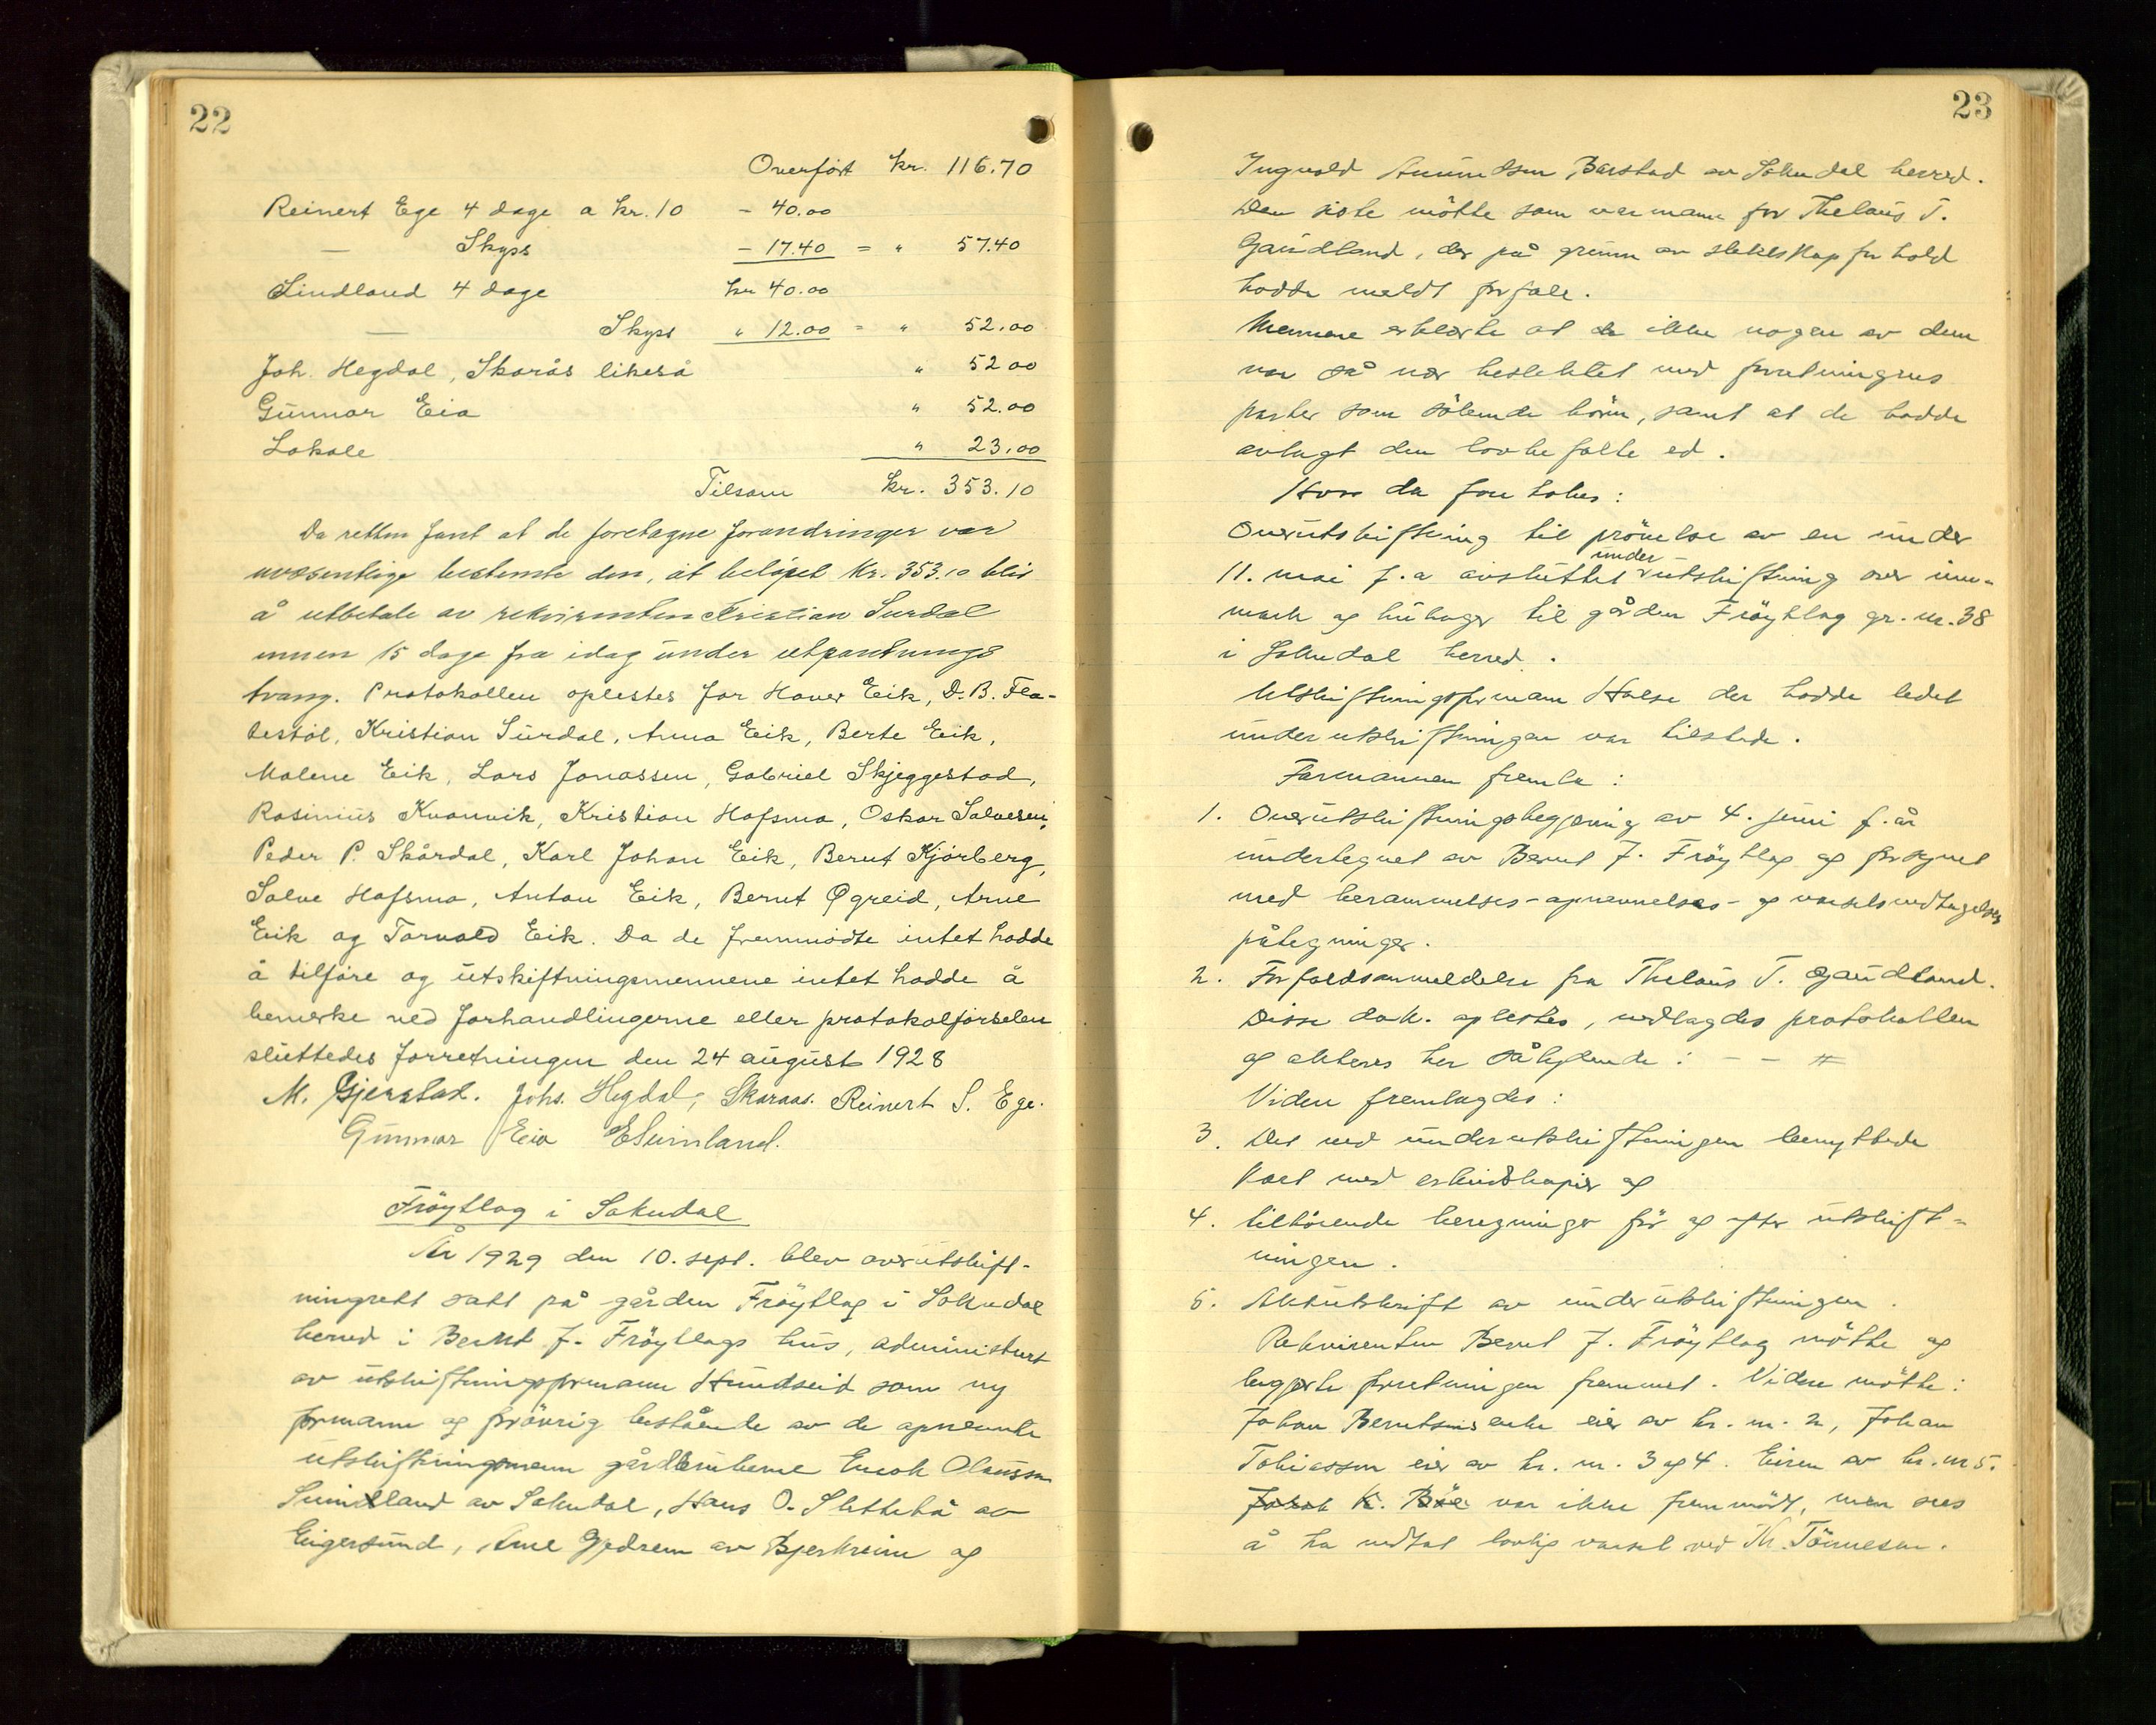 22
Overført kr. 116.70
Reinert Ege 4 dage a kr. 10 - 40.00
— Skyss - 17.40 = " 57.40
Lindland 4 dage kr 40.00
— Skyss " 12.00 = " 52.00
Joh. Hegdal, Skarås likeså " 52 00
Gunnar Eia " 52.00
Lokale " 23.00
Tilsam kr. 353.10
Da retten fant at de foretagne forandringer var
uvæsentlige bestemte den, at beløpet kr. 353.10 blir
å utbetale av rekvirenten Kristian Surdal
innen 15 dage fra idag under utpantnings
tvang. Protokollen oplestes for Haver Eik, D. B. Fla-
testøl, Kristian Surdal, Anna Eik, Berte Eik,
Malene Eik, Lars Jonassen, Gabriel Skjeggestad,
Rasinius Kvanvik, Kristian Hafsmo, Oskar Salvesen,
Peder P. Skårdal, Karl Johan Eik, Bernt Kjørberg,
Salve Hafsmo, Anton Eik, Bernt Øgreid, Arne
Eik og Torvald Eik. Da de fremmødte intet hadde
å tilføre og utskiftningsmennene intet hadde å
bemerke ved forhandlingerne eller protokolførselen
sluttedes forretningen den 24 august 1928
M. Gjerstad. Johs. Hegdal, Skaraas. Reinert S. Ege.
Gunnar Eia
Frøytlog i Sokndal
År 1929 den 10. sept. blev overutskift-
ningrett satt på gården Frøytlog i Sokndal
herred i Bernt J. Frøytlogs hus, administrert
av utskiftningsformann Hundseid som ny
formann og førøvrig bestående av de opnevnte
utskiftningsmenn gårdbrukerne Enok Olaussen
land av Sokndal, Hans O. Slettebø av
Eigersund, Arne Gjedrem av Bjerkreim og
23
Ingvald Amundsen Barstad av Sokndal herred.
Den siste møtte som varmann for Thelaus T.
Gaudland, der på grunn av slektskapforhold
hadde meldt forfall.
Mennene erklærte at de ikke nogen av dem
var så nær beslektet med forretningens
parter som sølende børn, samt at de hadde
avlagt den lovbefalte ed.
Hvor da foretokes:
Overutskiftning til prøvelse av en under
11. mai f. a avsluttet under-utskiftning over inn-
mark og huhager til gården Frøytlog gr. nr. 38
i Sokndal herred.
Utskiftningsformann Halse der hadde ledet
underutskiftningen var tilstede.
Formannen fremla:
1. Overutskiftningsbegjæring av 4. juni f. år
undertegnet av Bernt J. Frøytlog og forsynet
med berammelses- opnevnelses- og varselsvedtagelses
påtegninger.
2. Forfaldsanmeldelse fra Thelaus T. Gaudland.
Disse dok. oplestes, vedlagdes protokollen
og akteres her sålydende: - - #
Viden fremlagdes:
3. Det ved underutskiftningen benyttede
kart med arbeidskopier og
4. tilhørende beregninger før og efter utskift-
ningen.
5. Aktutskrift av underutskiftningen.
Rekvirenten Bernt J. Frøytlog møtte og
begjærte forretningen fremmet. Videre møtte:
Johan Berntsens enke eier av br. nr. 2, Johan
Tobiassen eier av br. nr. 3 og 4. Eieren av br. nr 5.
Jakob K. Bøe var ikke fremmødt, men sees
å ha vedtat lovlig varsel ved Th. Tønnesen.